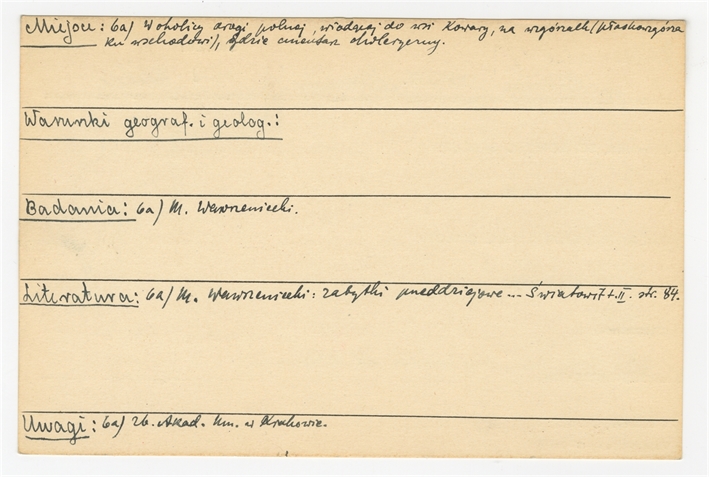 Miejsce: 6a) W okolicy drogi polnej, wiodącej do wsi Kowary, na wzgórzach (płaskowzgórza
ku wschodowi), gdzie cmentarz choleryczny.
Warunki geograf. i geolog.:
Badania: 6a) M. Wawrzeniecki.
Literatura: 6a) M. Wawrzeniecki: Zabytki przeddziejowe... Światowit t. II. str. 84.
Uwagi: 6a) Zb. Akad. Um. w Krakowie.